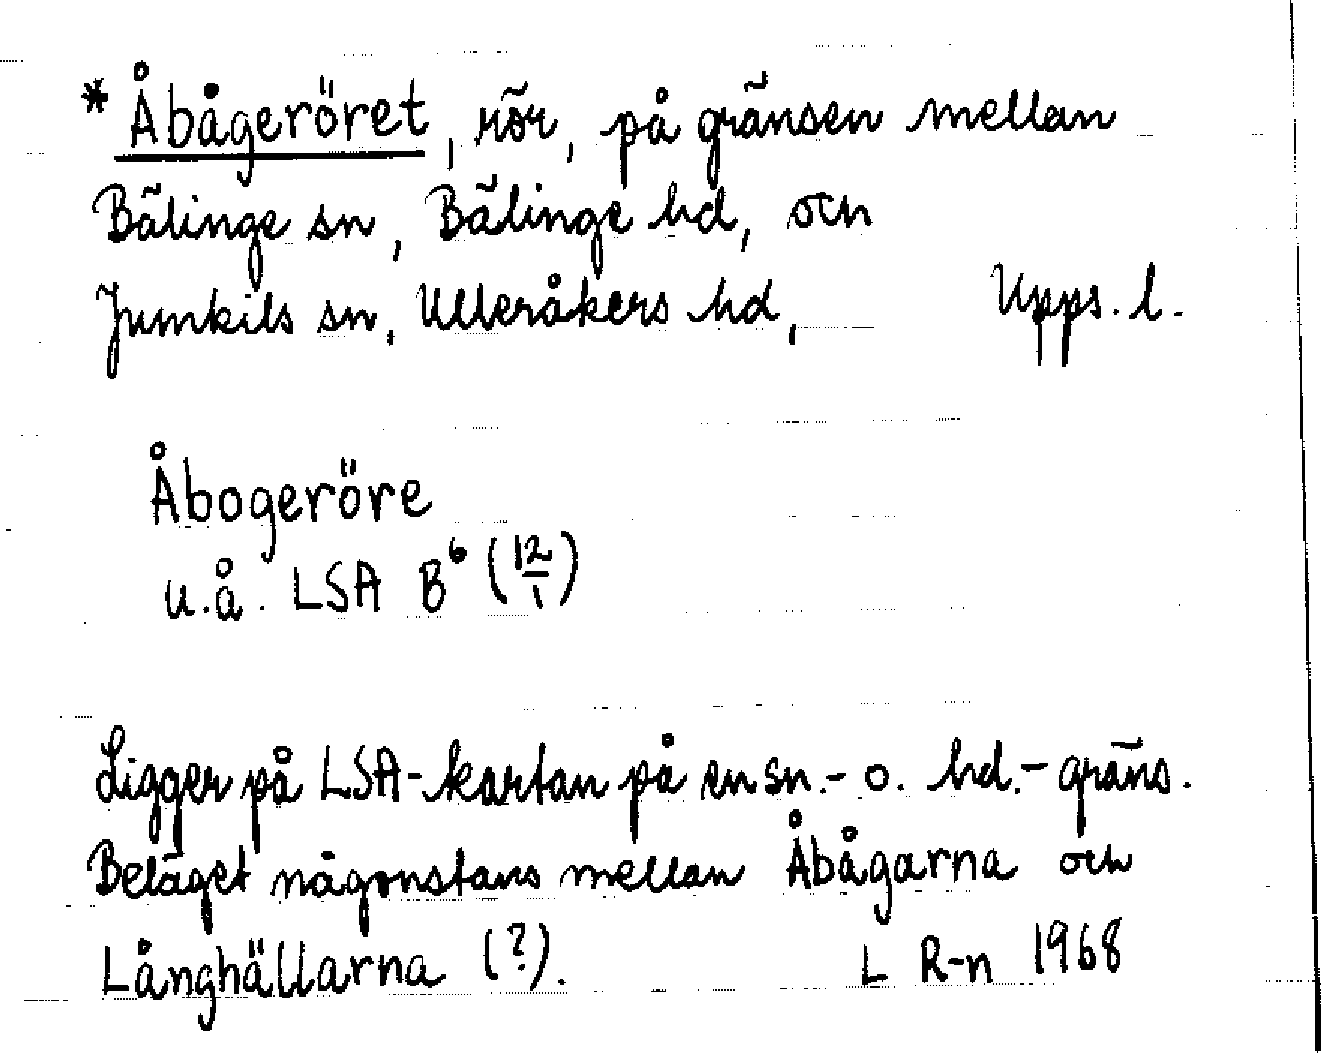 * Åbågeröret, rör, på gränsen mellan
Bälinge sn, Bälinge hd, och
Jumkils sn, Ulleråkers hd, Upps. l.
Åbogeröre
u.å. LSA B⁶ (12/1)
Ligger på LSA-kartan på en sn.- o. hd.- gräns.
Beläget någonstans mellan Åbågarna och
Långhällarna (?). L R-n 1968